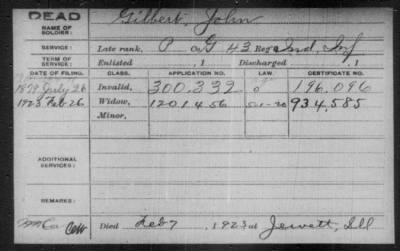 DEAD
NAME OF SOLDIER: Gilbert, John
SERVICE: Late rank, P Co G 43 Reg't Ind, Inf
TERM OF SERVICE: Enlisted , 1 Discharged , 1
DATE OF FILING. CLASS. APPLICATION NO. LAW. CERTIFICATE NO.
1879 July 26 Invalid, 300.332 196.096
1923 Feb 26 Widow, 1201456 934.585
Minor,
ADDITIONAL SERVICES:
REMARKS:
Died Feb 7 1923 at Jewett, Ill